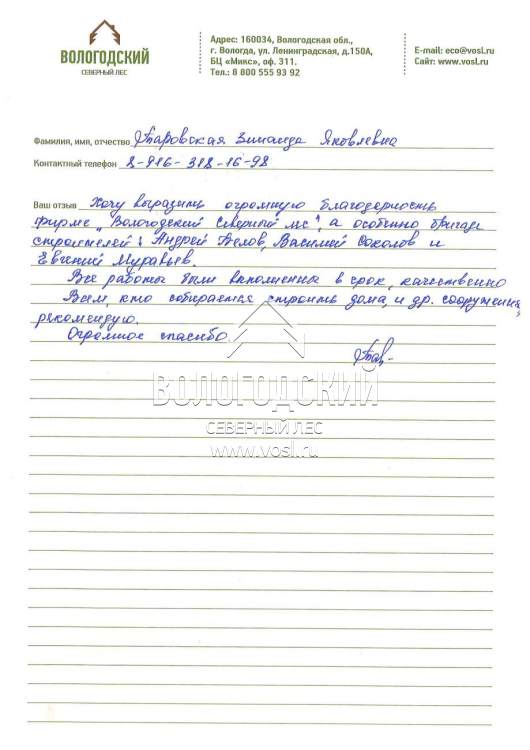 ВОЛОГОДСКИЙ
СЕВЕРНЫЙ ЛЕС
Адрес: 160034, Вологодская обл.,
г. Вологда, ул. Ленинградская, д.150А,
БЦ «Микс», оф. 311.
Тел.: 8 800 555 93 92
E-mail: eco@vosl.ru
Сайт: www.vosl.ru
Фамилия, имя, отчество Таровская Зинаида Яковлевна
Контактный телефон 8-916-318-16-98
Ваш отзыв Хочу выразить огромную благодарность
фирме "Вологодский Северный лес", а особенно бригаде
строителей: Андрей Белов, Василий Соколов и
Евгений Муравьев.
Все работы были выполнены в срок, качественно
Всем, кто собирается строить дома, и др. сооружения,
рекомендую.
Огромное спасибо.
ВОЛОГОДСКИЙ
СЕВЕРНЫЙ ЛЕС
www.vosl.ru